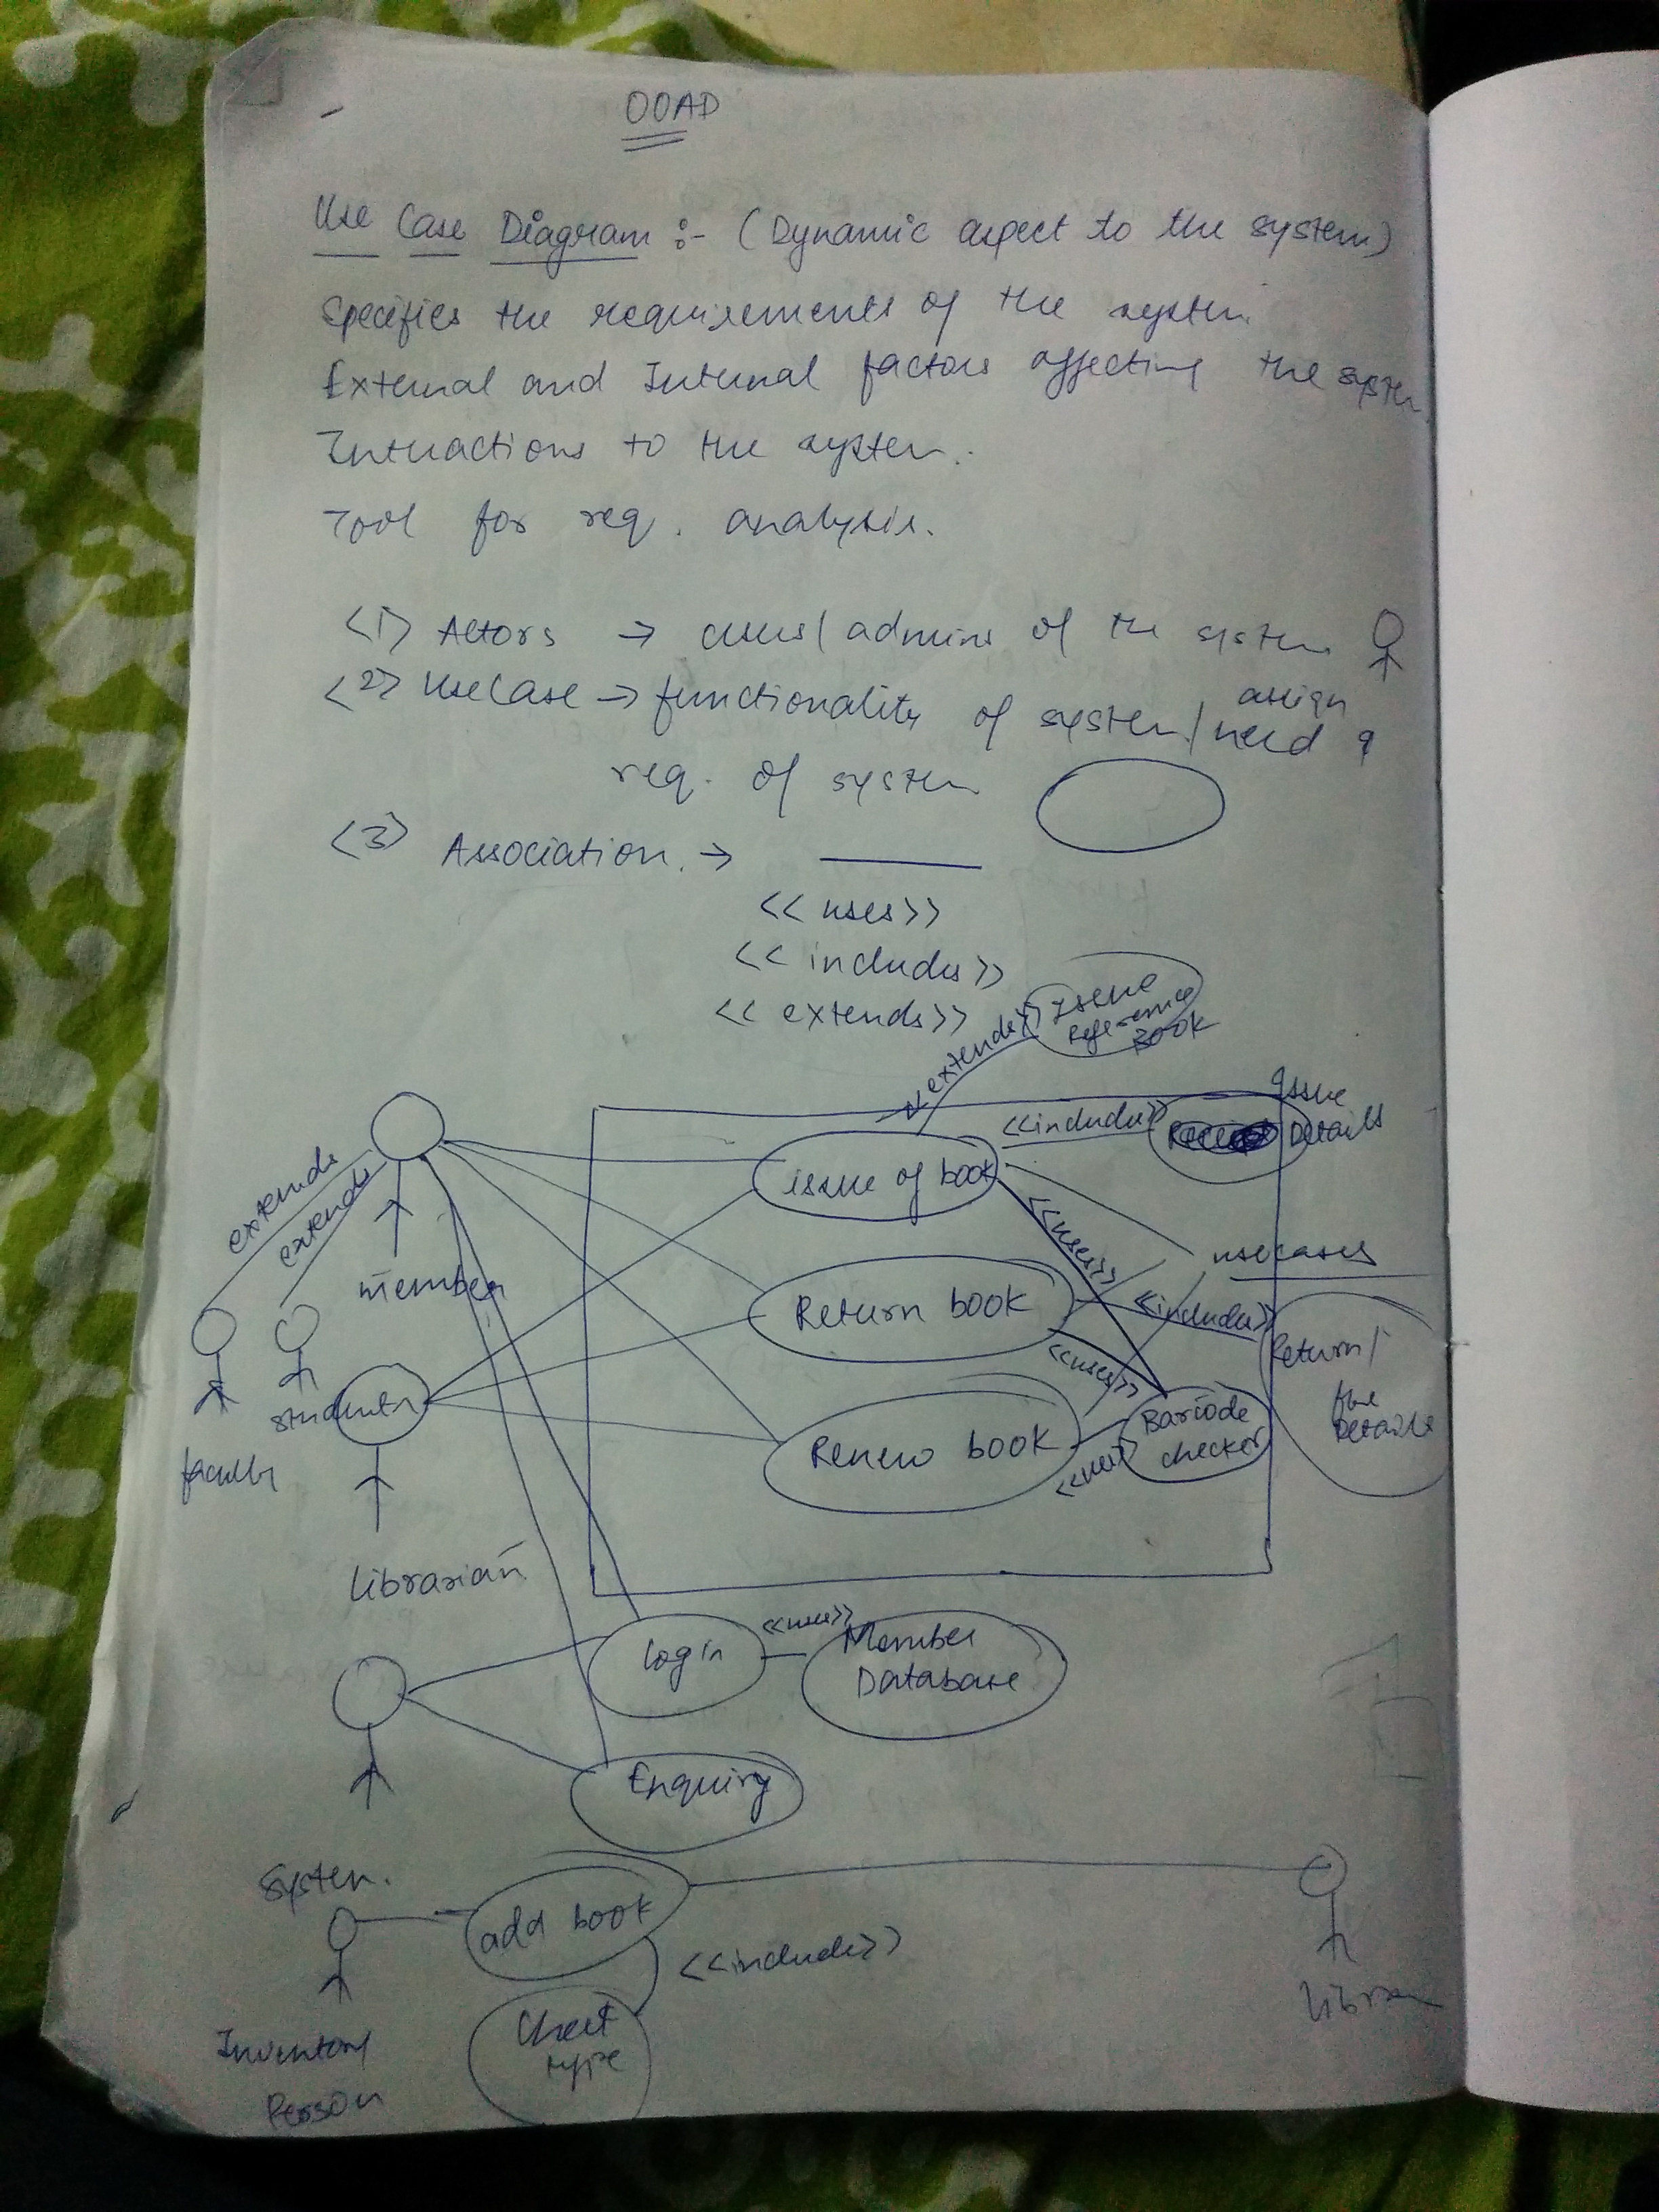 OOAD
Use Case Diagram :- (Dynamic aspect to the system)
Specifies the requirements of the system
External and Internal factors affecting the system
Interactions to the system.
Tool for req. analysis.
<1> Actors → users/admins of the system
<2> UseCase → functionality of system/need
assign
req. of system
<3> Association. →
<<uses>>
<<includes>>
<<extends>>
Issue
Reference
Book
<<extends>>
Issue
Details
<<includes>>
extends
extends
issue of book
member
<<uses>>
usecases
Return book
<<includes>>
Return/
fine
Details
<<uses>>
students
faculty
Renew book
Barcode
checker
<<uses>>
Librarian
login
<<uses>>
Member
Database
Enquiry
System.
add book
<<include>>
Inventory
Person
type